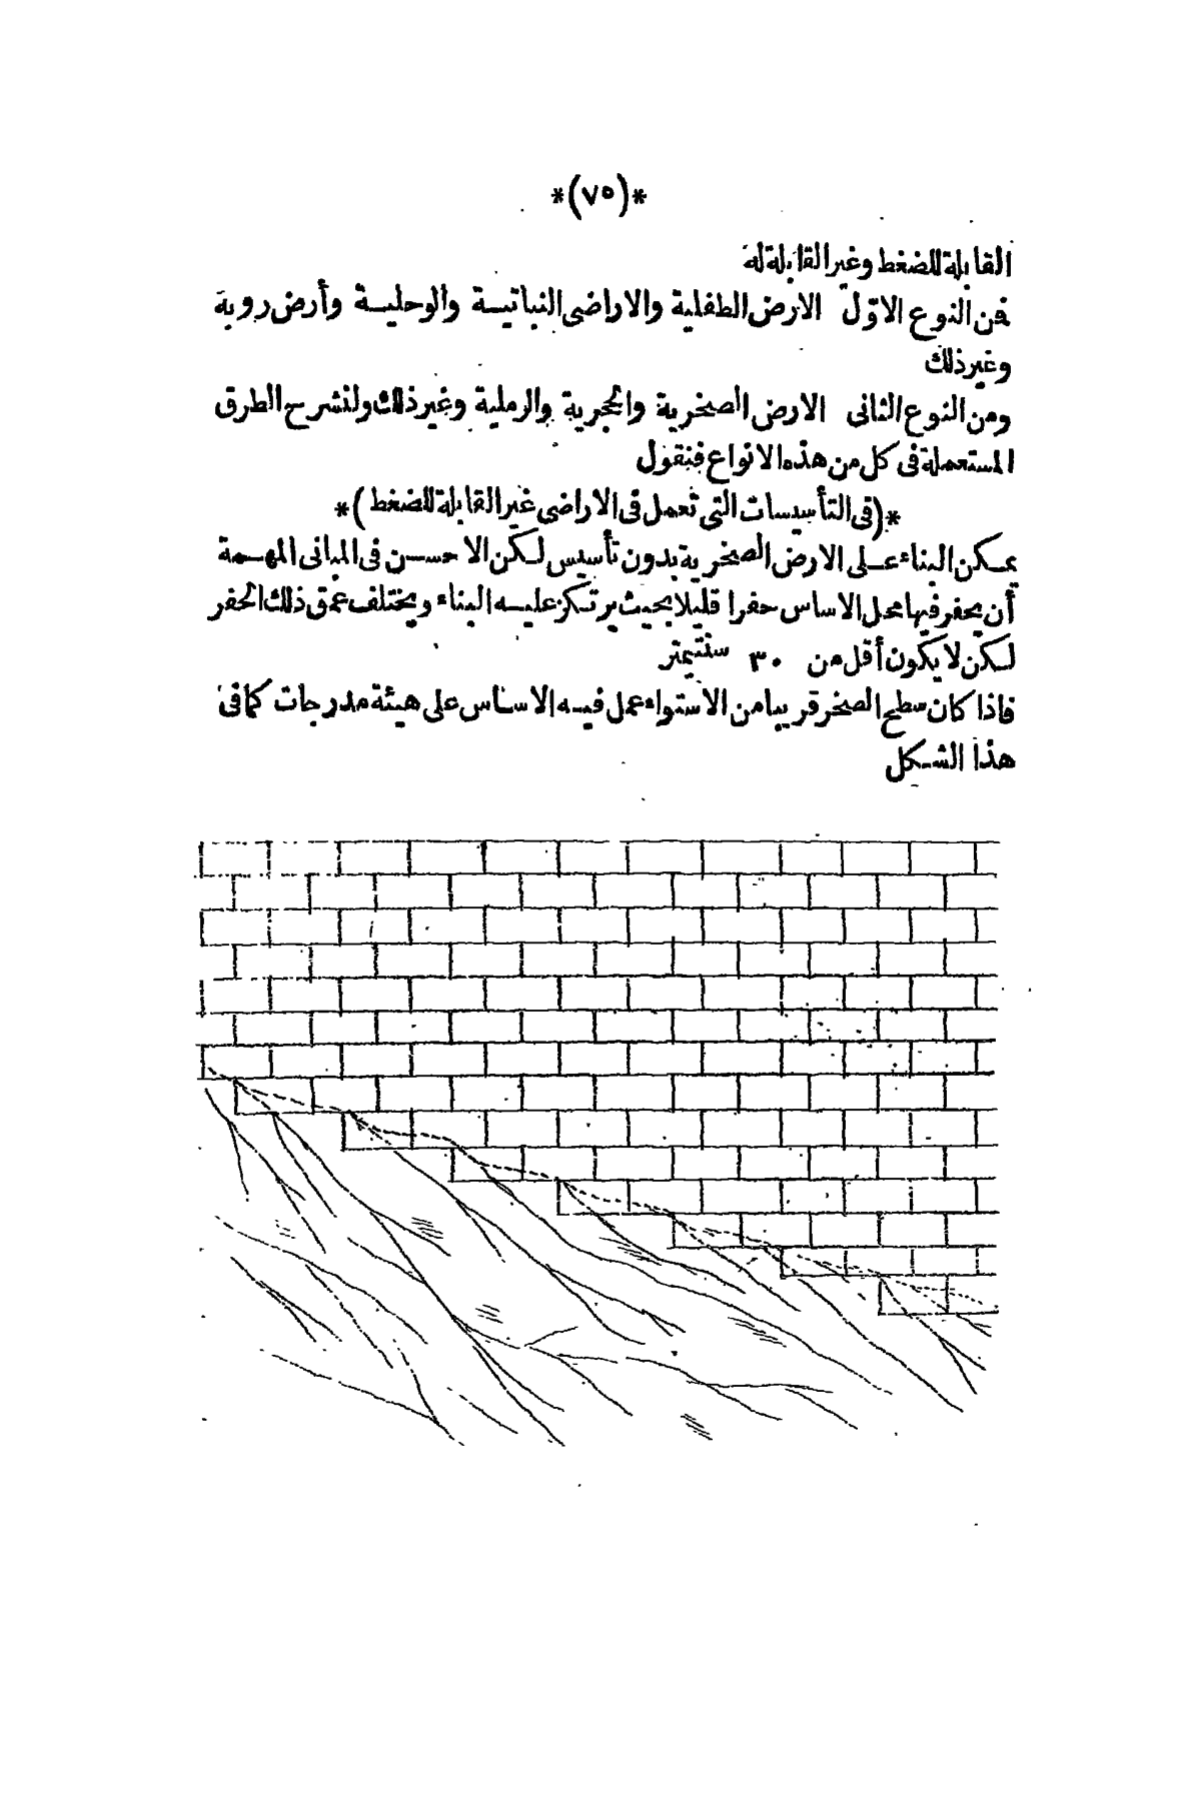 *(٧٥)*
القابلة للضغط وغير القابلة له
فمن النوع الاوّل الارض الطفلية والاراضى النباتيسة والوحليسة وأرض روبة
وغير ذلك
ومن النوع الثانى الارض الصخرية والحجرية والرملية وغير ذلك ولنشرح الطرق
المستعملة فى كل من هذه الانواع فنقول
*(فى التأسيسات التى تعمل فى الاراضى غير القابلة للضغط)*
يمكن البناء على الارض الصخرية بدون تأسيس لكن الاحسن فى المبانى المهمة
أن يحفر فيها محل الاساس حفرا قليلا بحيث يرتكز عليه البناء ويختلف عمق ذلك الحفر
لكن لا يكون أقل من ٣٠ سنتيمتر
فاذا كان سطح الصخر قريبا من الاستواء عمل فيه الاساس على هيئة مدرجات كما فى
هذا الشكل